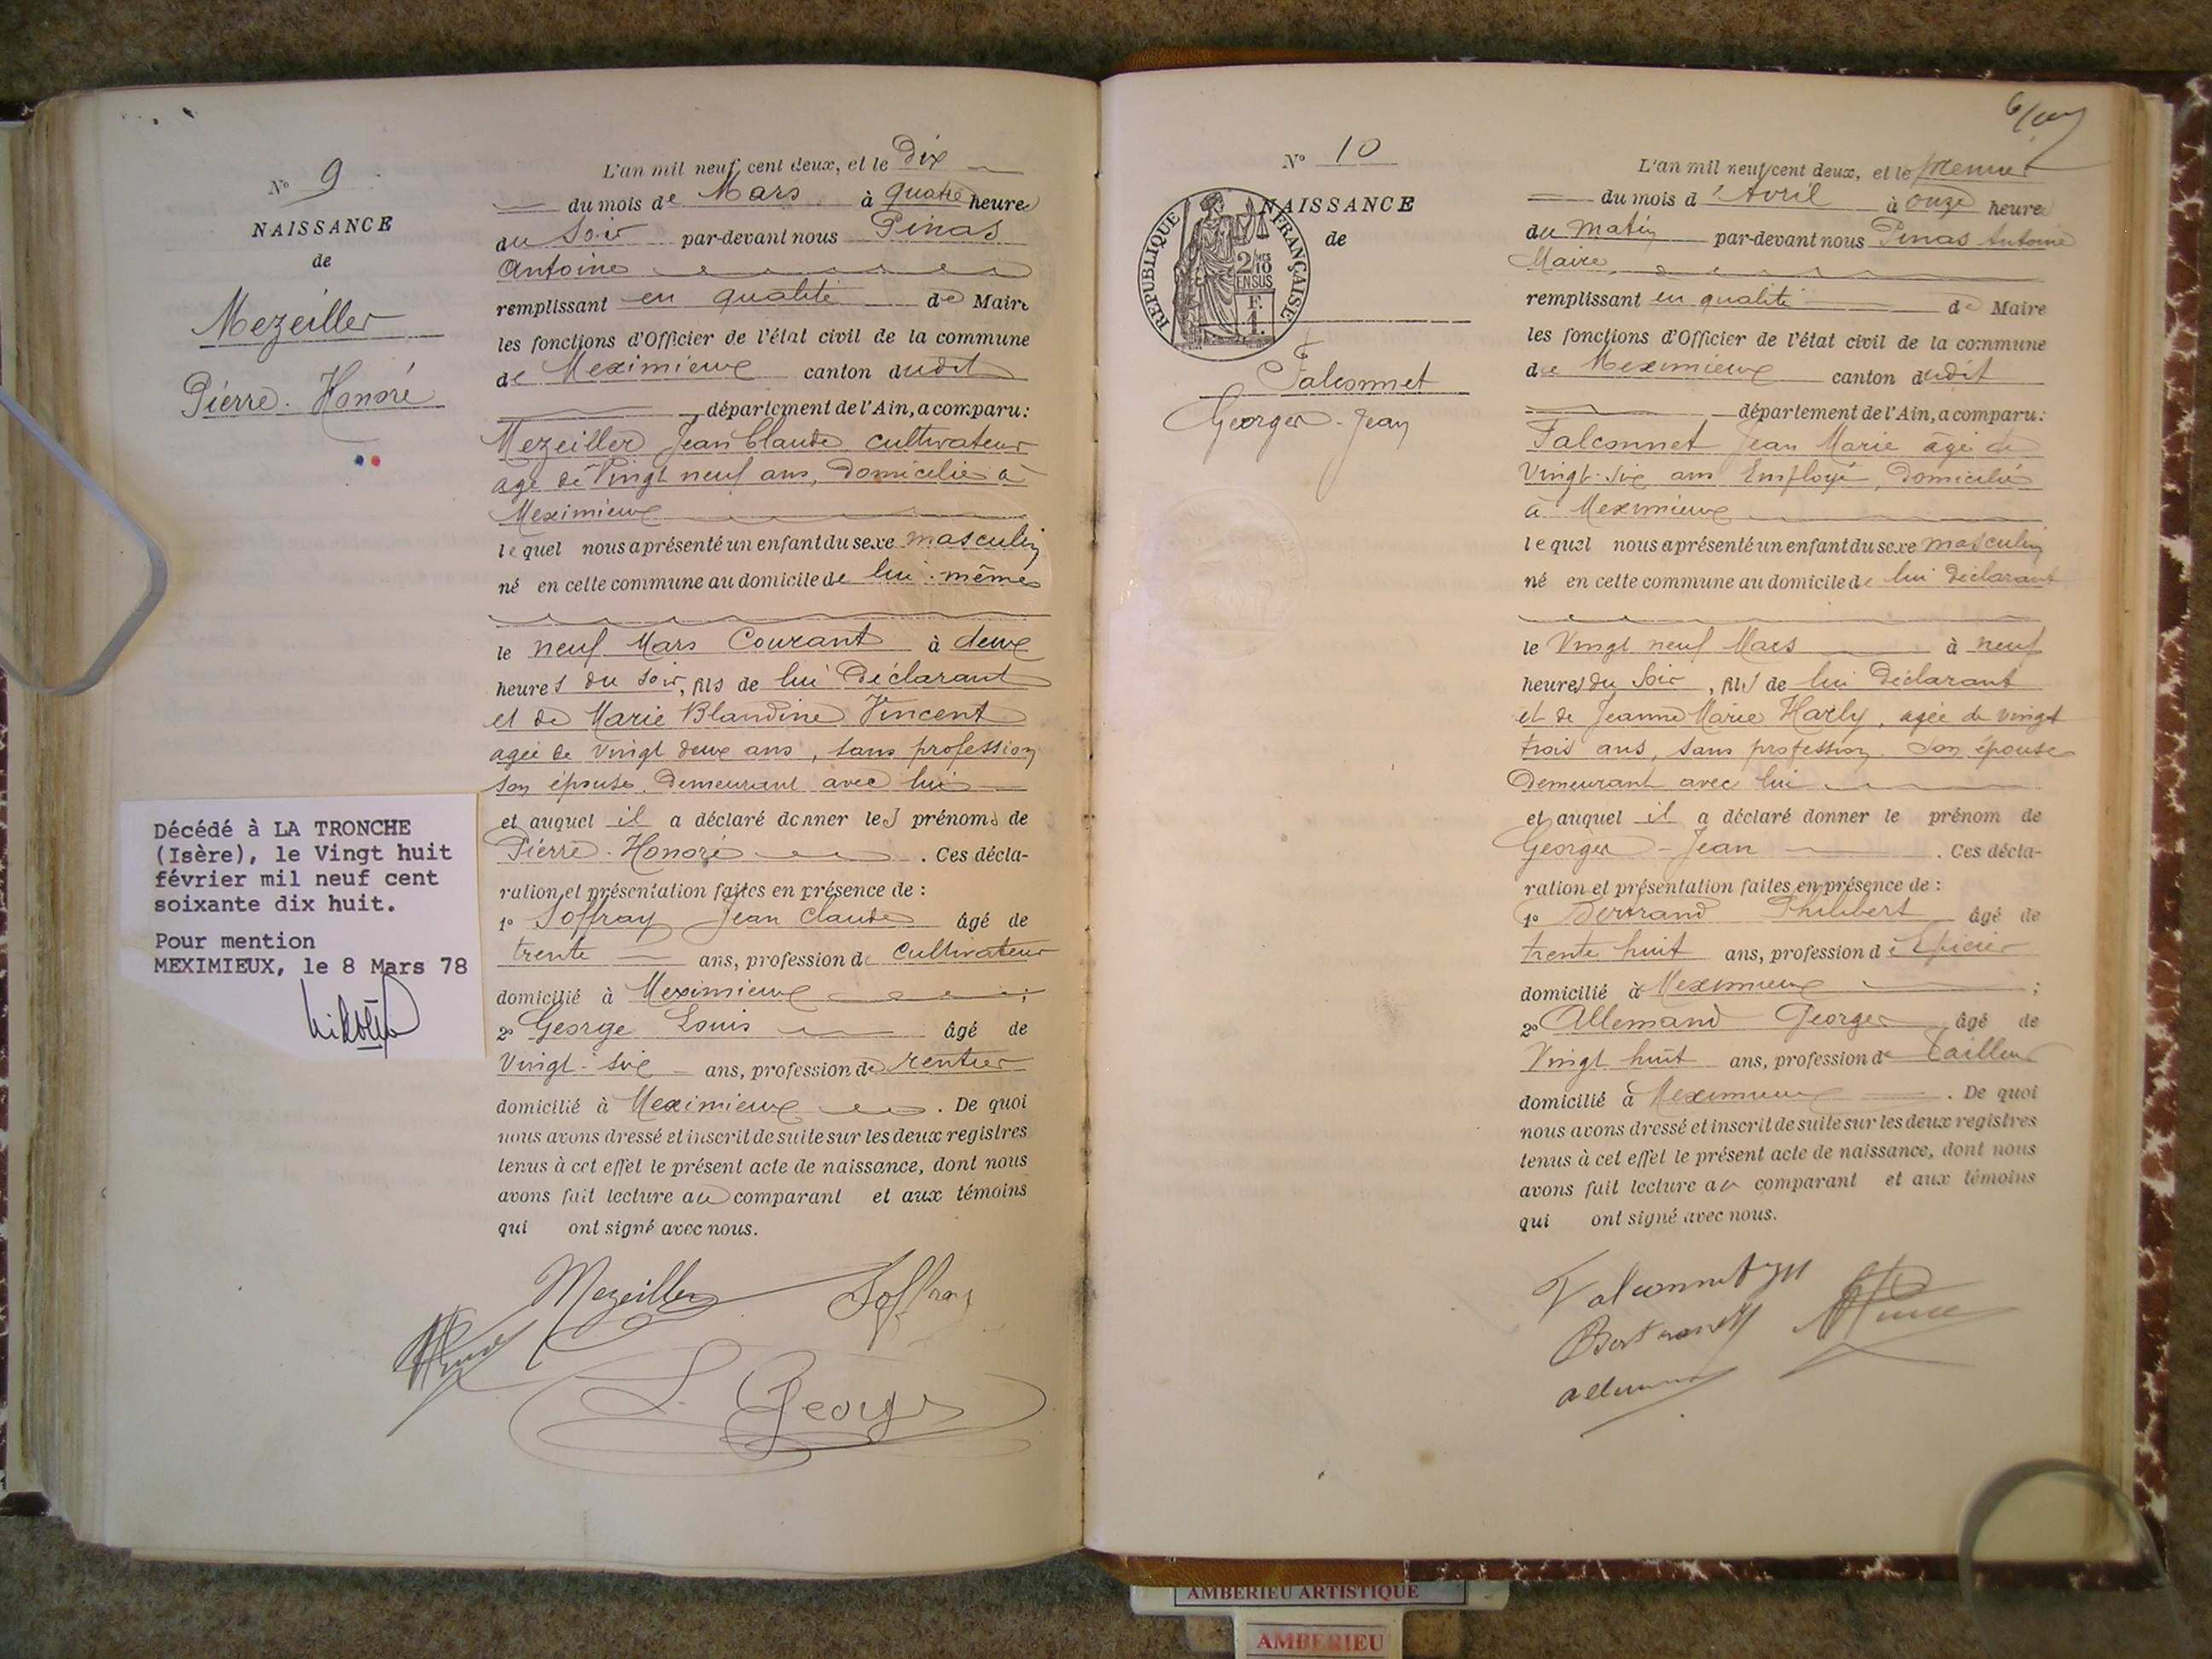 N° 9
NAISSANCE
de
Mezeiller
Pierre-Honoré
Décédé à LA TRONCHE
(Isère), le Vingt huit
février mil neuf cent
soixante dix huit.
Pour mention
MEXIMIEUX, le 8 Mars 78
L'an mil neuf cent deux, et le Dix
du mois de Mars à quatre heures
du Soir par-devant nous Pinas
Antoine
remplissant en qualité de Maire
les fonctions d'Officier de l'état civil de la commune
de Meximieux canton dudit
département de l'Ain, a comparu:
Mezeiller Jean Claude cultivateur
agé de Vingt neuf ans, Domicilié à
Meximieux
lequel nous a présenté un enfant du sexe masculin
né en cette commune au domicile de lui-même
le neuf Mars Courant à deux
heures du Soir, fils de lui Déclarant
et de Marie Blandine Vincent
agée de Vingt deux ans, sans profession
son épouse, Demeurant avec lui
et auquel il a déclaré donner les prénoms de
Pierre-Honoré. Ces décla-
ration et présentation faites en présence de :
1° Soffray Jean Claude âgé de
trente ans, profession de Cultivateur
domicilié à Meximieux ;
2° George Louis âgé de
Vingt-six ans, profession de rentier
domicilié à Meximieux. De quoi
nous avons dressé et inscrit de suite sur les deux registres
tenus à cet effet le présent acte de naissance, dont nous
avons fait lecture au comparant et aux témoins
qui ont signé avec nous.
Mezeiller Soffray
L. George
N° 10
NAISSANCE
de
RÉPUBLIQUE FRANÇAISE
2/10
EN SUS
F.
1.
Falconnet
Georges-Jean
L'an mil neuf cent deux, et le premier
du mois d'Avril à onze heures
du Matin par-devant nous Pinas Antoine
Maire
remplissant en qualité de Maire
les fonctions d'Officier de l'état civil de la commune
de Meximieux canton dudit
département de l'Ain, a comparu:
Falconnet Jean Marie agé de
Vingt-six ans Employé, Domicilié
à Meximieux
lequel nous a présenté un enfant du sexe masculin
né en cette commune au domicile de lui déclarant
le Vingt neuf Mars à neuf
heures du Soir, fils de lui Déclarant
et de Jeanne Marie Harly, agée de vingt
trois ans, sans profession. Son épouse
Demeurant avec lui
et auquel il a déclaré donner le prénom de
Georges-Jean. Ces décla-
ration et présentation faites en présence de :
1° Bertrand Philibert âgé de
trente huit ans, profession d'Epicier
domicilié à Meximieux ;
2° Allemand Georges âgé de
Vingt huit ans, profession de Tailleur
domicilié à Meximieux. De quoi
nous avons dressé et inscrit de suite sur les deux registres
tenus à cet effet le présent acte de naissance, dont nous
avons fait lecture au comparant et aux témoins
qui ont signé avec nous.
Falconnet
Bertrand
AMBERIEU ARTISTIQUE
AMBERIEU